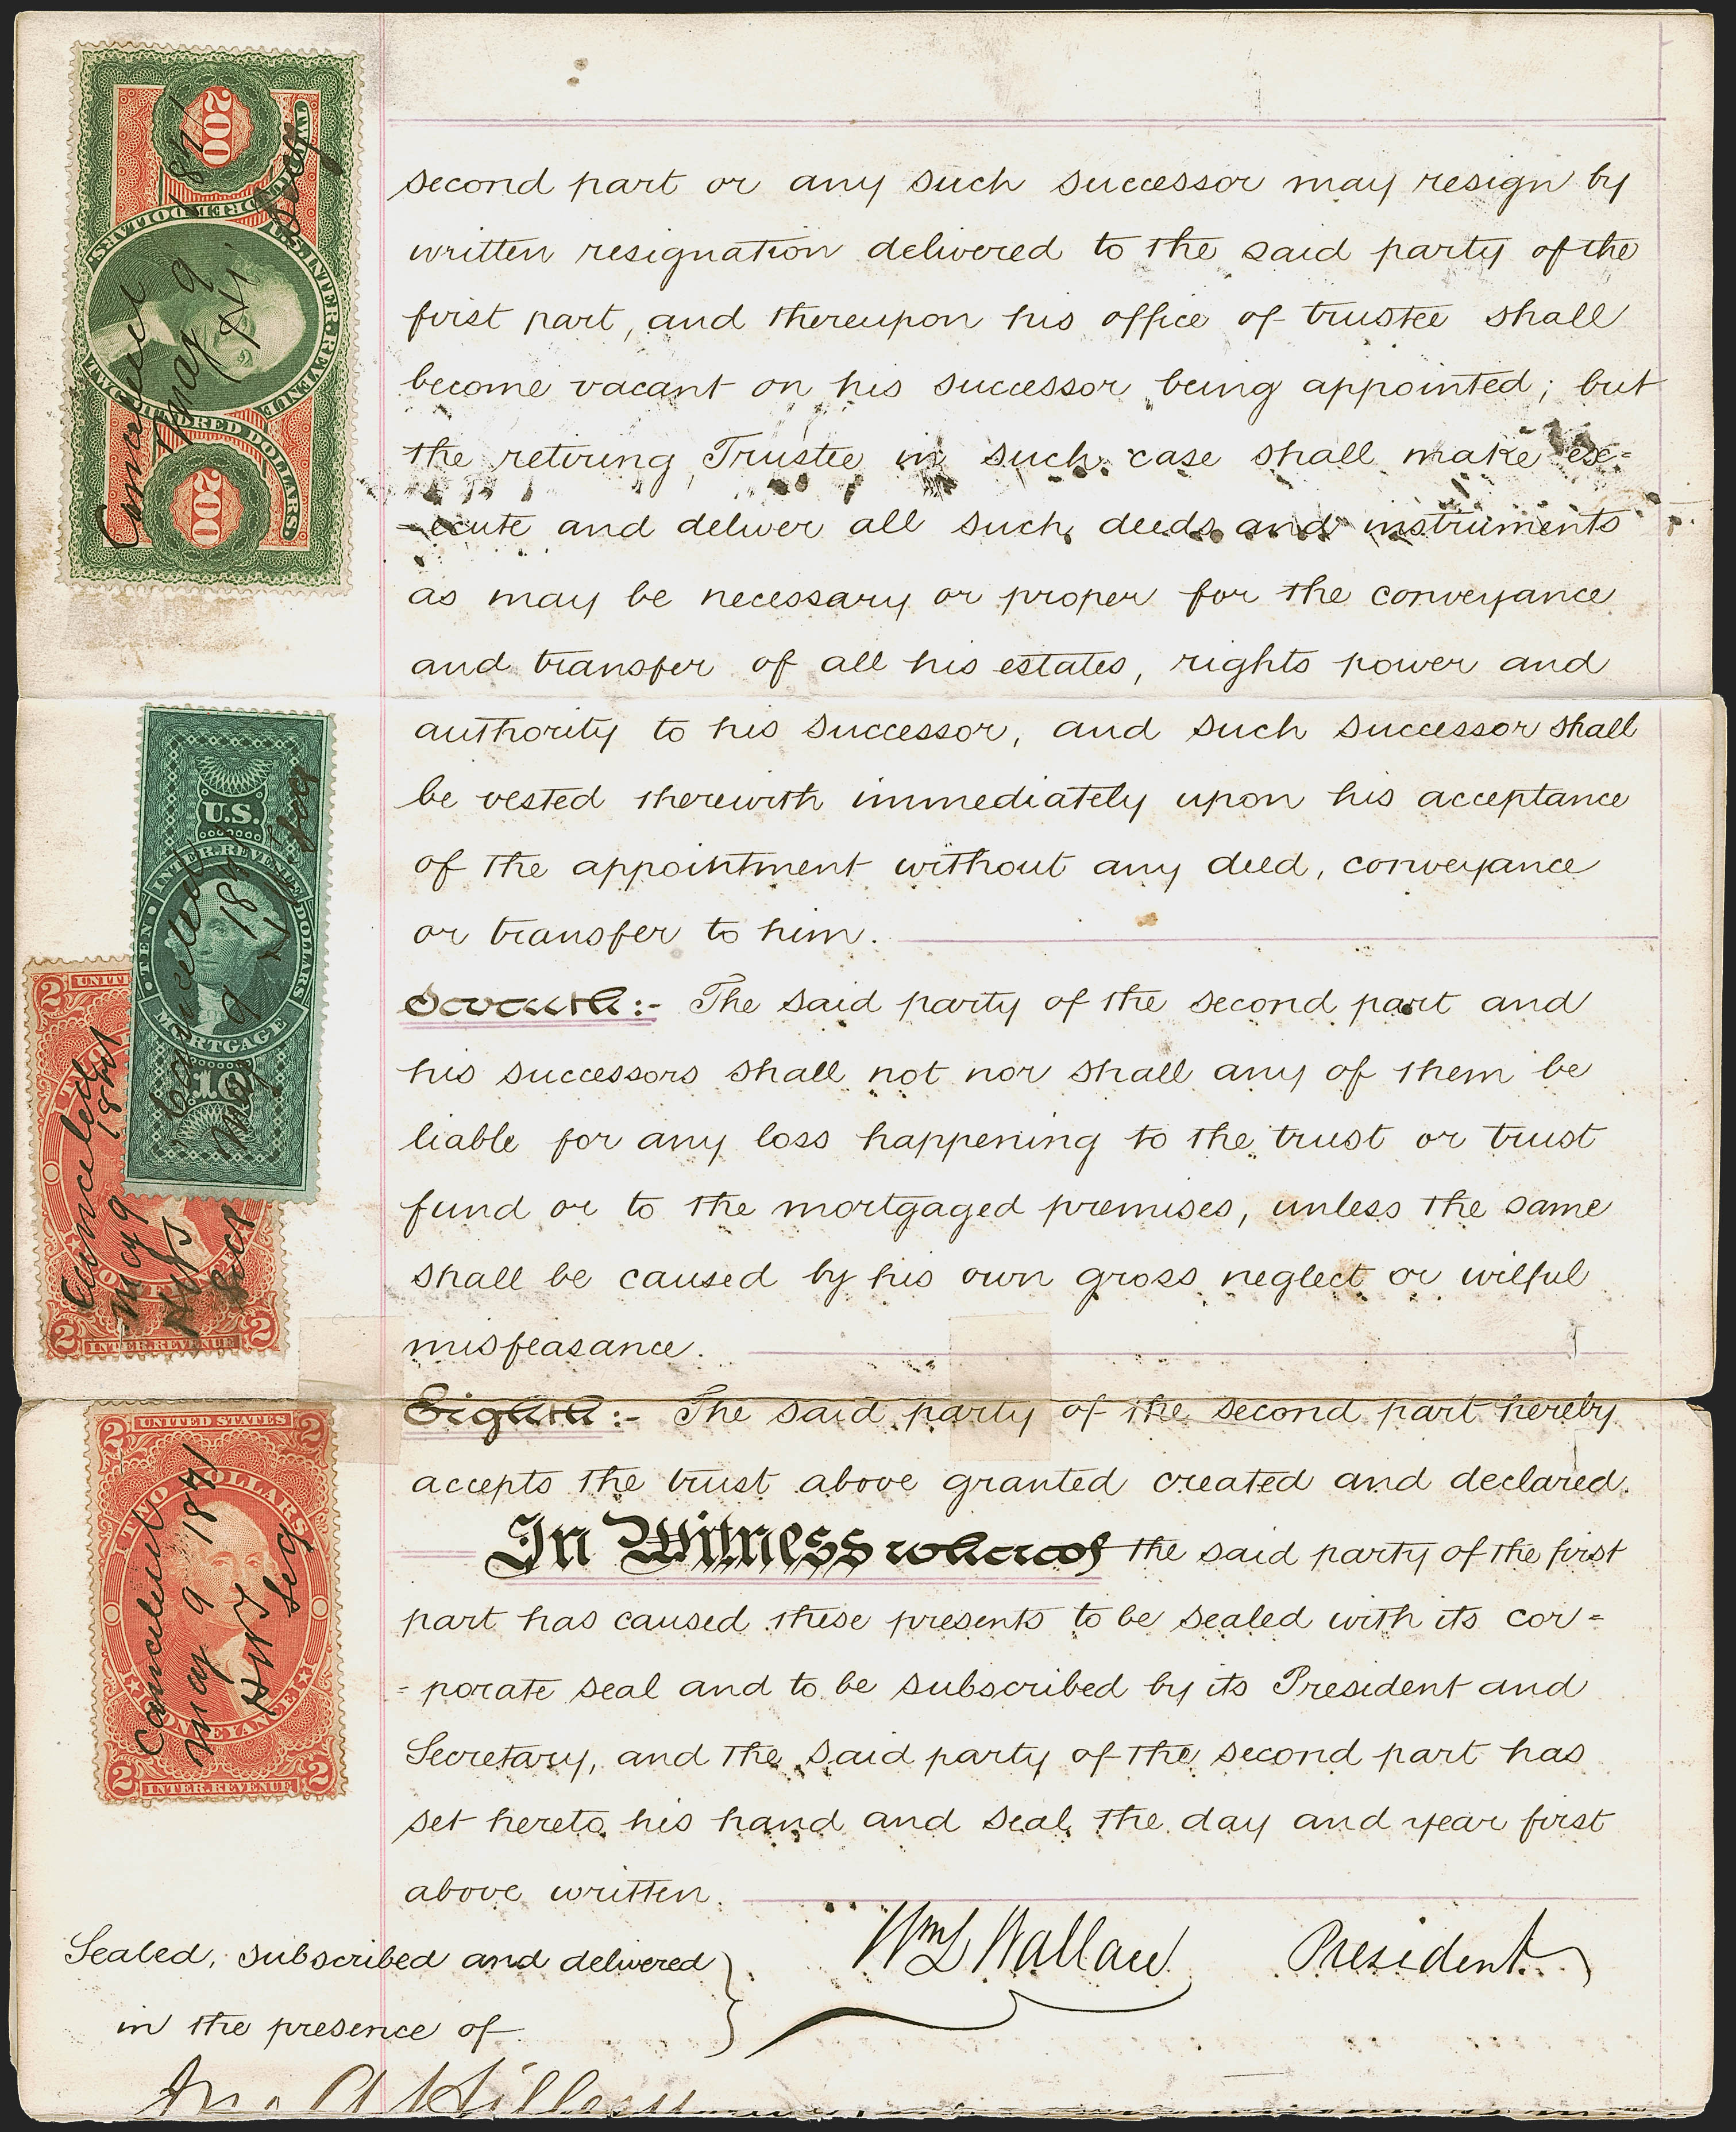 second part or any such successor may resign by
written resignation delivered to the said party of the
first part, and thereupon his office of trustee shall
become vacant on his successor being appointed; but
the retiring Trustee in such case shall make ex=
=ecute and deliver all such deeds and instruments
as may be necessary or proper for the conveyance
and transfer of all his estates, rights power and
authority to his successor, and such successor shall
be vested therewith immediately upon his acceptance
of the appointment without any deed, conveyance
or transfer to him.
Seventh:- The said party of the second part and
his successors shall not nor shall any of them be
liable for any loss happening to the trust or trust
fund or to the mortgaged premises, unless the same
shall be caused by his own gross neglect or wilful
misfeasance.
Eighth:- The said party of the second part hereby
accepts the trust above granted created and declared.
In Witness whereof the said party of the first
part has caused these presents to be sealed with its cor=
=porate seal and to be subscribed by its President and
Secretary, and the said party of the second part has
set hereto his hand and seal the day and year first
above written.
Wm L Wallace President
Sealed, subscribed and delivered
in the presence of
200
U.S. INTER. REVENUE
TWO HUNDRED DOLLARS
200
TWO HUNDRED DOLLARS
Cancelled
May 9
1871
Secy
U.S.
INTER. REVENUE
TEN DOLLARS
MORTGAGE
10
Cancelled
May 9 1871
Secy
2 UNIT
2 INTER. REVENUE 2
Cancelled
May 9 1871
Secy
2 UNITED STATES 2
TWO DOLLARS
CONVEYANCE
2 INTER. REVENUE 2
Cancelled
May 9 1871
Secy